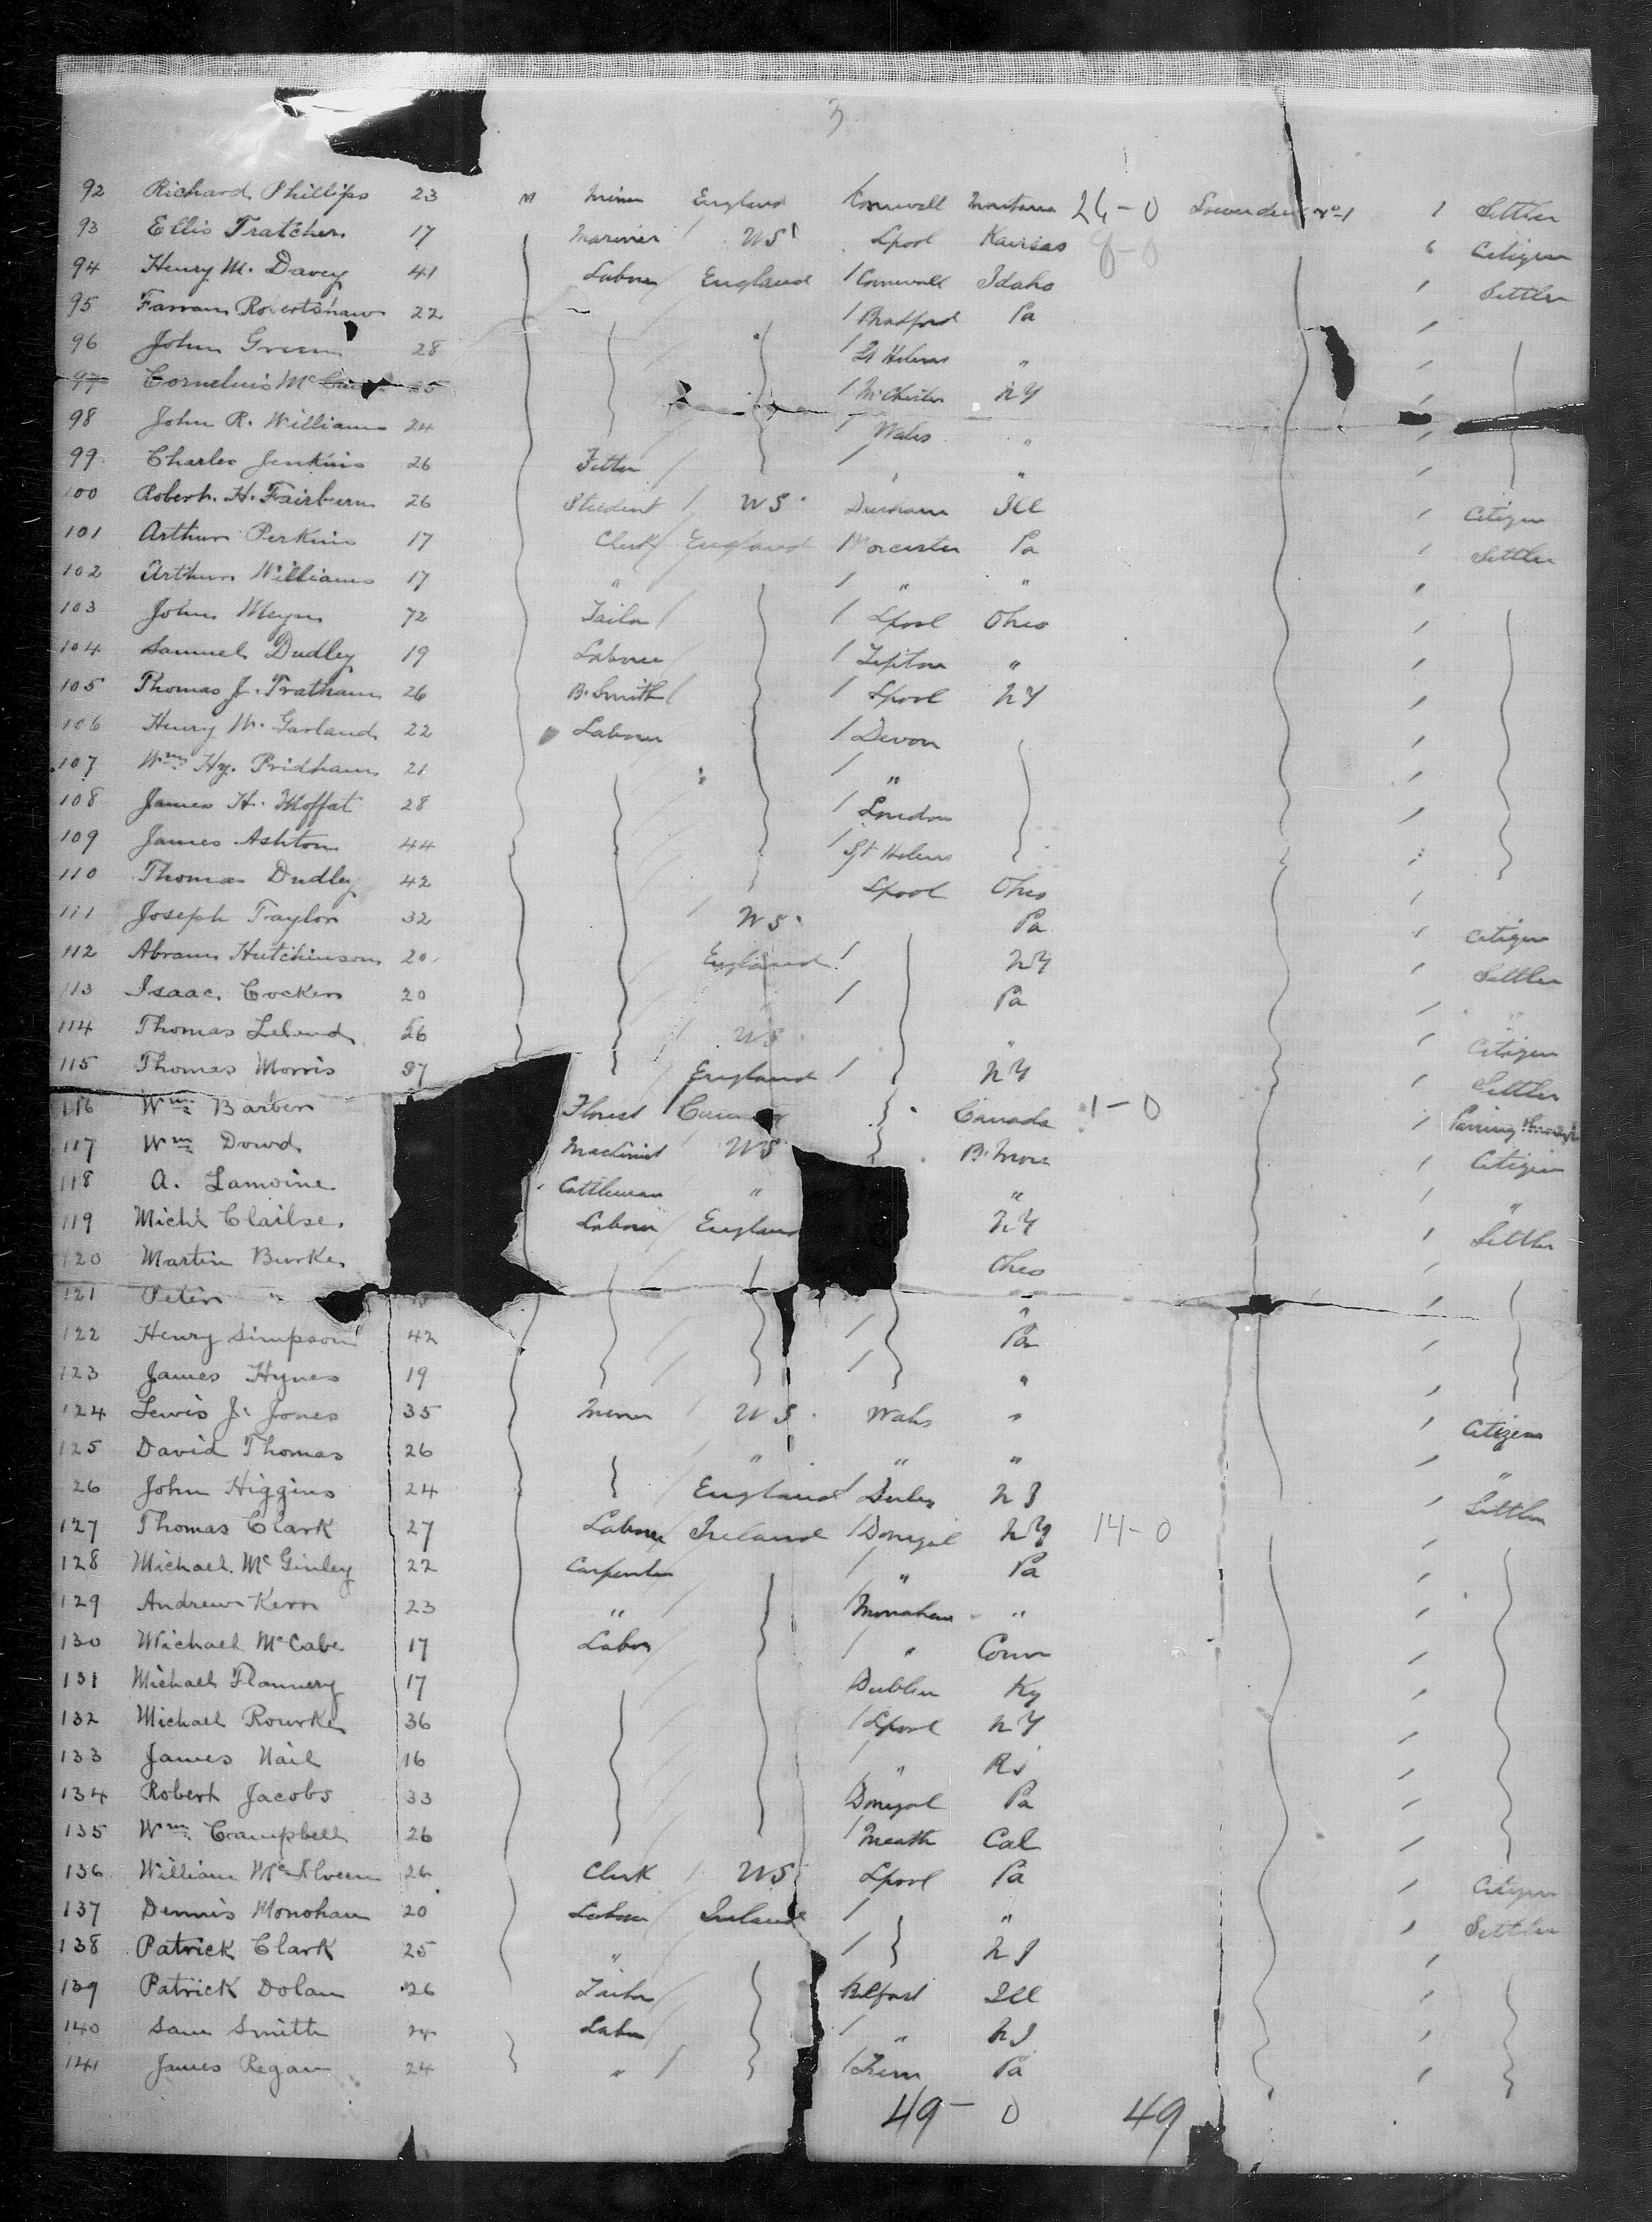 3
92 Richard Phillips 23 M Miner England Cornwall Montana 26-0 1 Settler
93 Ellis Tratcher 17 Mariner US Lpool Kansas 8-0 Citizen
94 Henry M. Davey 41 Labour England Cornwall Idaho Settler
95 Robertshaw 22 Bradford Pa
96 John Green 28 St Helens "
97 Cornelius Mc 25 NY
98 John R. Williams 24 Wales "
99 Charles Jenkins 26 Fitter " "
100 Robert. H. Fairburn 26 Student US Durham Ill Citizen
101 Arthur Perkins 17 Clerk England Worcester Pa Settler
102 Arthur Williams 17 " " "
103 John 72 Tailor Lpool Ohio
104 Samuel Dudley 19 Labour Tipton "
105 Thomas J. Tratham 26 B. Smith Lpool NY
106 Henry W. Garland 22 Labour Devon
107 Wm Hy. Pridham 21 "
108 James H. Moffat 28 London
109 James Ashton 44 St Helens
110 Thomas Dudley 42 Lpool Ohio
111 Joseph Taylor 32 US Pa Citizen
112 Abram Hutchinson 20 England NY Settler
113 Isaac Cocker 20 Pa "
114 Thomas 26 US " Citizen
115 Thomas Morris 37 England NY Settler
116 Wm Barber Florist Canada 1-0 Passing through
117 Wm Dowd Machinist US B. More Citizen
118 A. Lamoine Cattleman " " "
119 Michl Labour England NY Settler
120 Martin Burke Ohio
121 Peter " "
122 Henry Simpson 42 Pa
123 James Hynes 19 "
124 Lewis J. Jones 35 Miner US Wales " Citizen
125 David Thomas 26 " " " "
26 John Higgins 24 England NJ Settler
127 Thomas Clark 27 Labour Ireland Donegal NY 14-0
128 Michael McGinley 22 Carpenter " Pa
129 Andrew Kerr 23 " Monahan "
130 Michael McCabe 17 Labor " Conn
131 Michael Flannery 17 Dublin Ky
132 Michael Rourke 36 Lpool NY
133 James Nail 16 " RI
134 Robert Jacobs 33 Donegal Pa
135 Wm Campbell 26 Meath Cal
136 William 26 Clerk US Lpool Pa Citizen
137 Dennis Monohan 20 Labour Ireland " Settler
138 Patrick Clark 25 " NJ
139 Patrick Dolan 26 Tailor Belfast Ill
140 Sam Smith 24 Labor " NJ
141 James Regan 24 " Pa
49-0 49